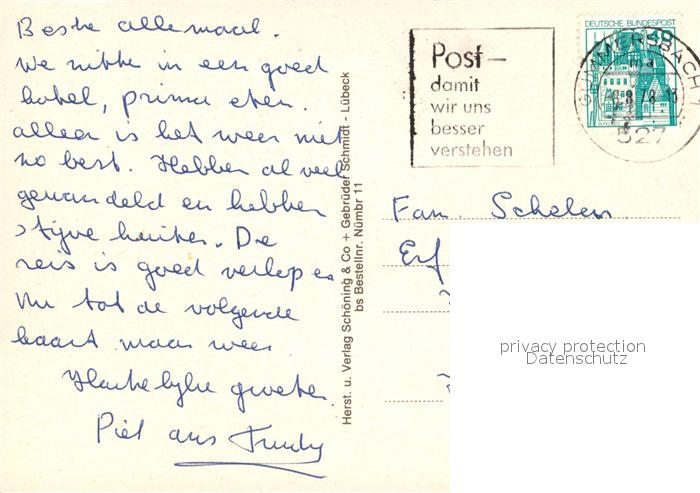 Beste allemaal.
We zitten in een goed
hotel, prima eten.
alleen is het weer niet
zo best. Hebben al veel
gewandeld en hebben
stijve kuiten. De
reis is goed verlopen
Nu tot de volgende
kaart maar weer
Hartelijke groeten
Piet Trudy
Herst. u. Verlag Schöning & Co + Gebrüder Schmidt - Lübeck
bs Bestellnr. Nümbr 11
Post -
damit
wir uns
besser
verstehen
DEUTSCHE BUNDESPOST
40
GUMMERSBACH 1
ma
527
Fam. Schelen
Erf
privacy protection
Datenschutz